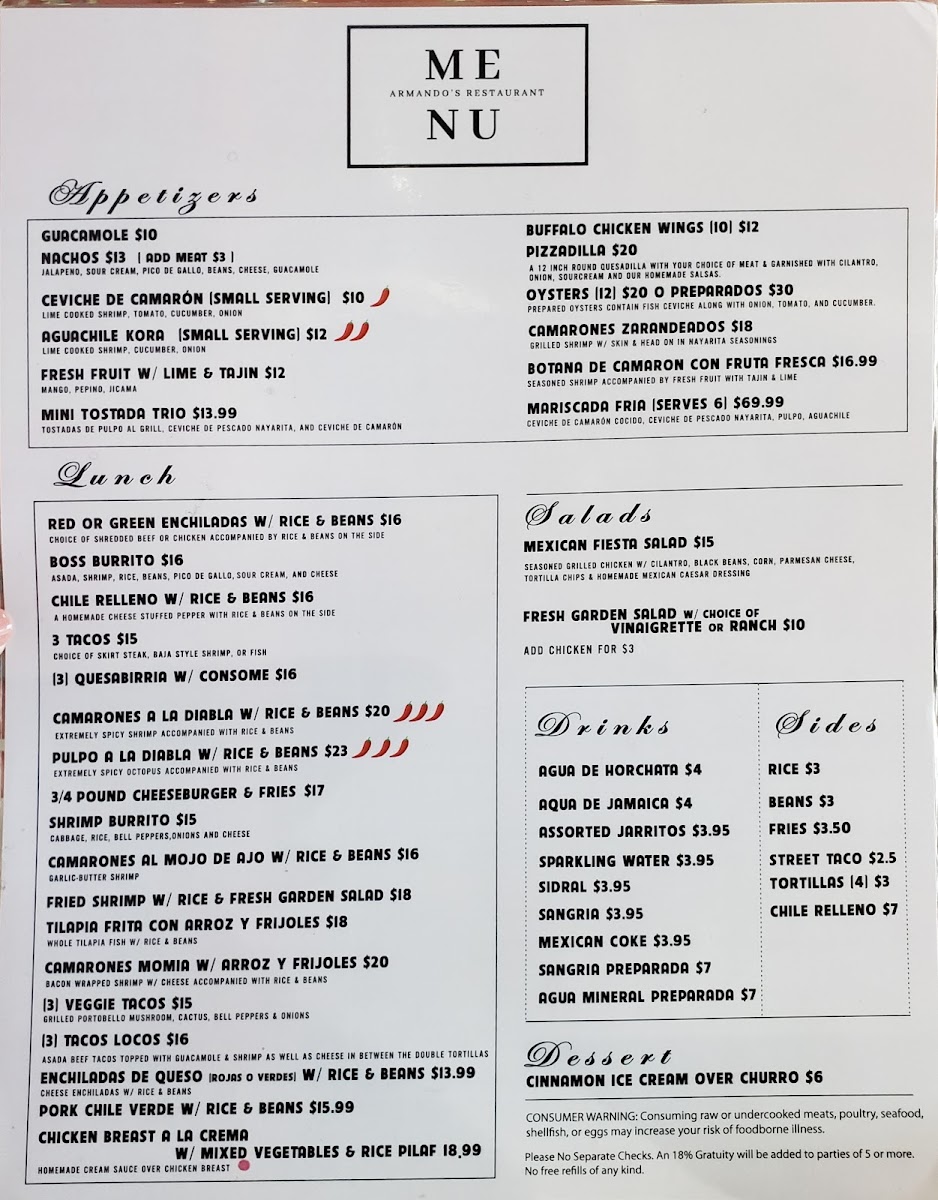 ME
ARMANDO'S RESTAURANT
NU
Appetizers
GUACAMOLE $10
NACHOS $13 | ADD MEAT $3 |
JALAPENO, SOUR CREAM, PICO DE GALLO, BEANS, CHEESE, GUACAMOLE
CEVICHE DE CAMARÓN |SMALL SERVING| $10
LIME COOKED SHRIMP, TOMATO, CUCUMBER, ONION
AGUACHILE KORA |SMALL SERVING| $12
LIME COOKED SHRIMP, CUCUMBER, ONION
FRESH FRUIT W/ LIME & TAJIN $12
MANGO, PEPINO, JICAMA
MINI TOSTADA TRIO $13.99
TOSTADAS DE PULPO AL GRILL, CEVICHE DE PESCADO NAYARITA, AND CEVICHE DE CAMARÓN
BUFFALO CHICKEN WINGS |10| $12
PIZZADILLA $20
A 12 INCH ROUND QUESADILLA WITH YOUR CHOICE OF MEAT & GARNISHED WITH CILANTRO,
ONION, SOURCREAM AND OUR HOMEMADE SALSAS.
OYSTERS |12| $20 O PREPARADOS $30
PREPARED OYSTERS CONTAIN FISH CEVICHE ALONG WITH ONION, TOMATO, AND CUCUMBER.
CAMARONES ZARANDEADOS $18
GRILLED SHRIMP W/ SKIN & HEAD ON IN NAYARITA SEASONINGS
BOTANA DE CAMARON CON FRUTA FRESCA $16.99
SEASONED SHRIMP ACCOMPANIED BY FRESH FRUIT WITH TAJIN & LIME
MARISCADA FRIA |SERVES 6| $69.99
CEVICHE DE CAMARÓN COCIDO, CEVICHE DE PESCADO NAYARITA, PULPO, AGUACHILE
Lunch
RED OR GREEN ENCHILADAS W/ RICE & BEANS $16
CHOICE OF SHREDDED BEEF OR CHICKEN ACCOMPANIED BY RICE & BEANS ON THE SIDE
BOSS BURRITO $16
ASADA, SHRIMP, RICE, BEANS, PICO DE GALLO, SOUR CREAM, AND CHEESE
CHILE RELLENO W/ RICE & BEANS $16
A HOMEMADE CHEESE STUFFED PEPPER WITH RICE & BEANS ON THE SIDE
3 TACOS $15
CHOICE OF SKIRT STEAK, BAJA STYLE SHRIMP, OR FISH
|3| QUESABIRRIA W/ CONSOME $16
CAMARONES A LA DIABLA W/ RICE & BEANS $20
EXTREMELY SPICY SHRIMP ACCOMPANIED WITH RICE & BEANS
PULPO A LA DIABLA W/ RICE & BEANS $23
EXTREMELY SPICY OCTOPUS ACCOMPANIED WITH RICE & BEANS
3/4 POUND CHEESEBURGER & FRIES $17
SHRIMP BURRITO $15
CABBAGE, RICE, BELL PEPPERS,ONIONS AND CHEESE
CAMARONES AL MOJO DE AJO W/ RICE & BEANS $16
GARLIC-BUTTER SHRIMP
FRIED SHRIMP W/ RICE & FRESH GARDEN SALAD $18
TILAPIA FRITA CON ARROZ Y FRIJOLES $18
WHOLE TILAPIA FISH W/ RICE & BEANS
CAMARONES MOMIA W/ ARROZ Y FRIJOLES $20
BACON WRAPPED SHRIMP W/ CHEESE ACCOMPANIED WITH RICE & BEANS
|3| VEGGIE TACOS $15
GRILLED PORTOBELLO MUSHROOM, CACTUS, BELL PEPPERS & ONIONS
|3| TACOS LOCOS $16
ASADA BEEF TACOS TOPPED WITH GUACAMOLE & SHRIMP AS WELL AS CHEESE IN BETWEEN THE DOUBLE TORTILLAS
ENCHILADAS DE QUESO |ROJAS O VERDES| W/ RICE & BEANS $13.99
CHEESE ENCHILADAS W/ RICE & BEANS
PORK CHILE VERDE W/ RICE & BEANS $15.99
CHICKEN BREAST A LA CREMA
W/ MIXED VEGETABLES & RICE PILAF 18.99
HOMEMADE CREAM SAUCE OVER CHICKEN BREAST
Salads
MEXICAN FIESTA SALAD $15
SEASONED GRILLED CHICKEN W/ CILANTRO, BLACK BEANS, CORN, PARMESAN CHEESE,
TORTILLA CHIPS & HOMEMADE MEXICAN CAESAR DRESSING
FRESH GARDEN SALAD W/ CHOICE OF
VINAIGRETTE OR RANCH $10
ADD CHICKEN FOR $3
Drinks
AGUA DE HORCHATA $4
AQUA DE JAMAICA $4
ASSORTED JARRITOS $3.95
SPARKLING WATER $3.95
SIDRAL $3.95
SANGRIA $3.95
MEXICAN COKE $3.95
SANGRIA PREPARADA $7
AGUA MINERAL PREPARADA $7
Sides
RICE $3
BEANS $3
FRIES $3.50
STREET TACO $2.5
TORTILLAS |4| $3
CHILE RELLENO $7
Dessert
CINNAMON ICE CREAM OVER CHURRO $6
CONSUMER WARNING: Consuming raw or undercooked meats, poultry, seafood,
shellfish, or eggs may increase your risk of foodborne illness.
Please No Separate Checks. An 18% Gratuity will be added to parties of 5 or more.
No free refills of any kind.